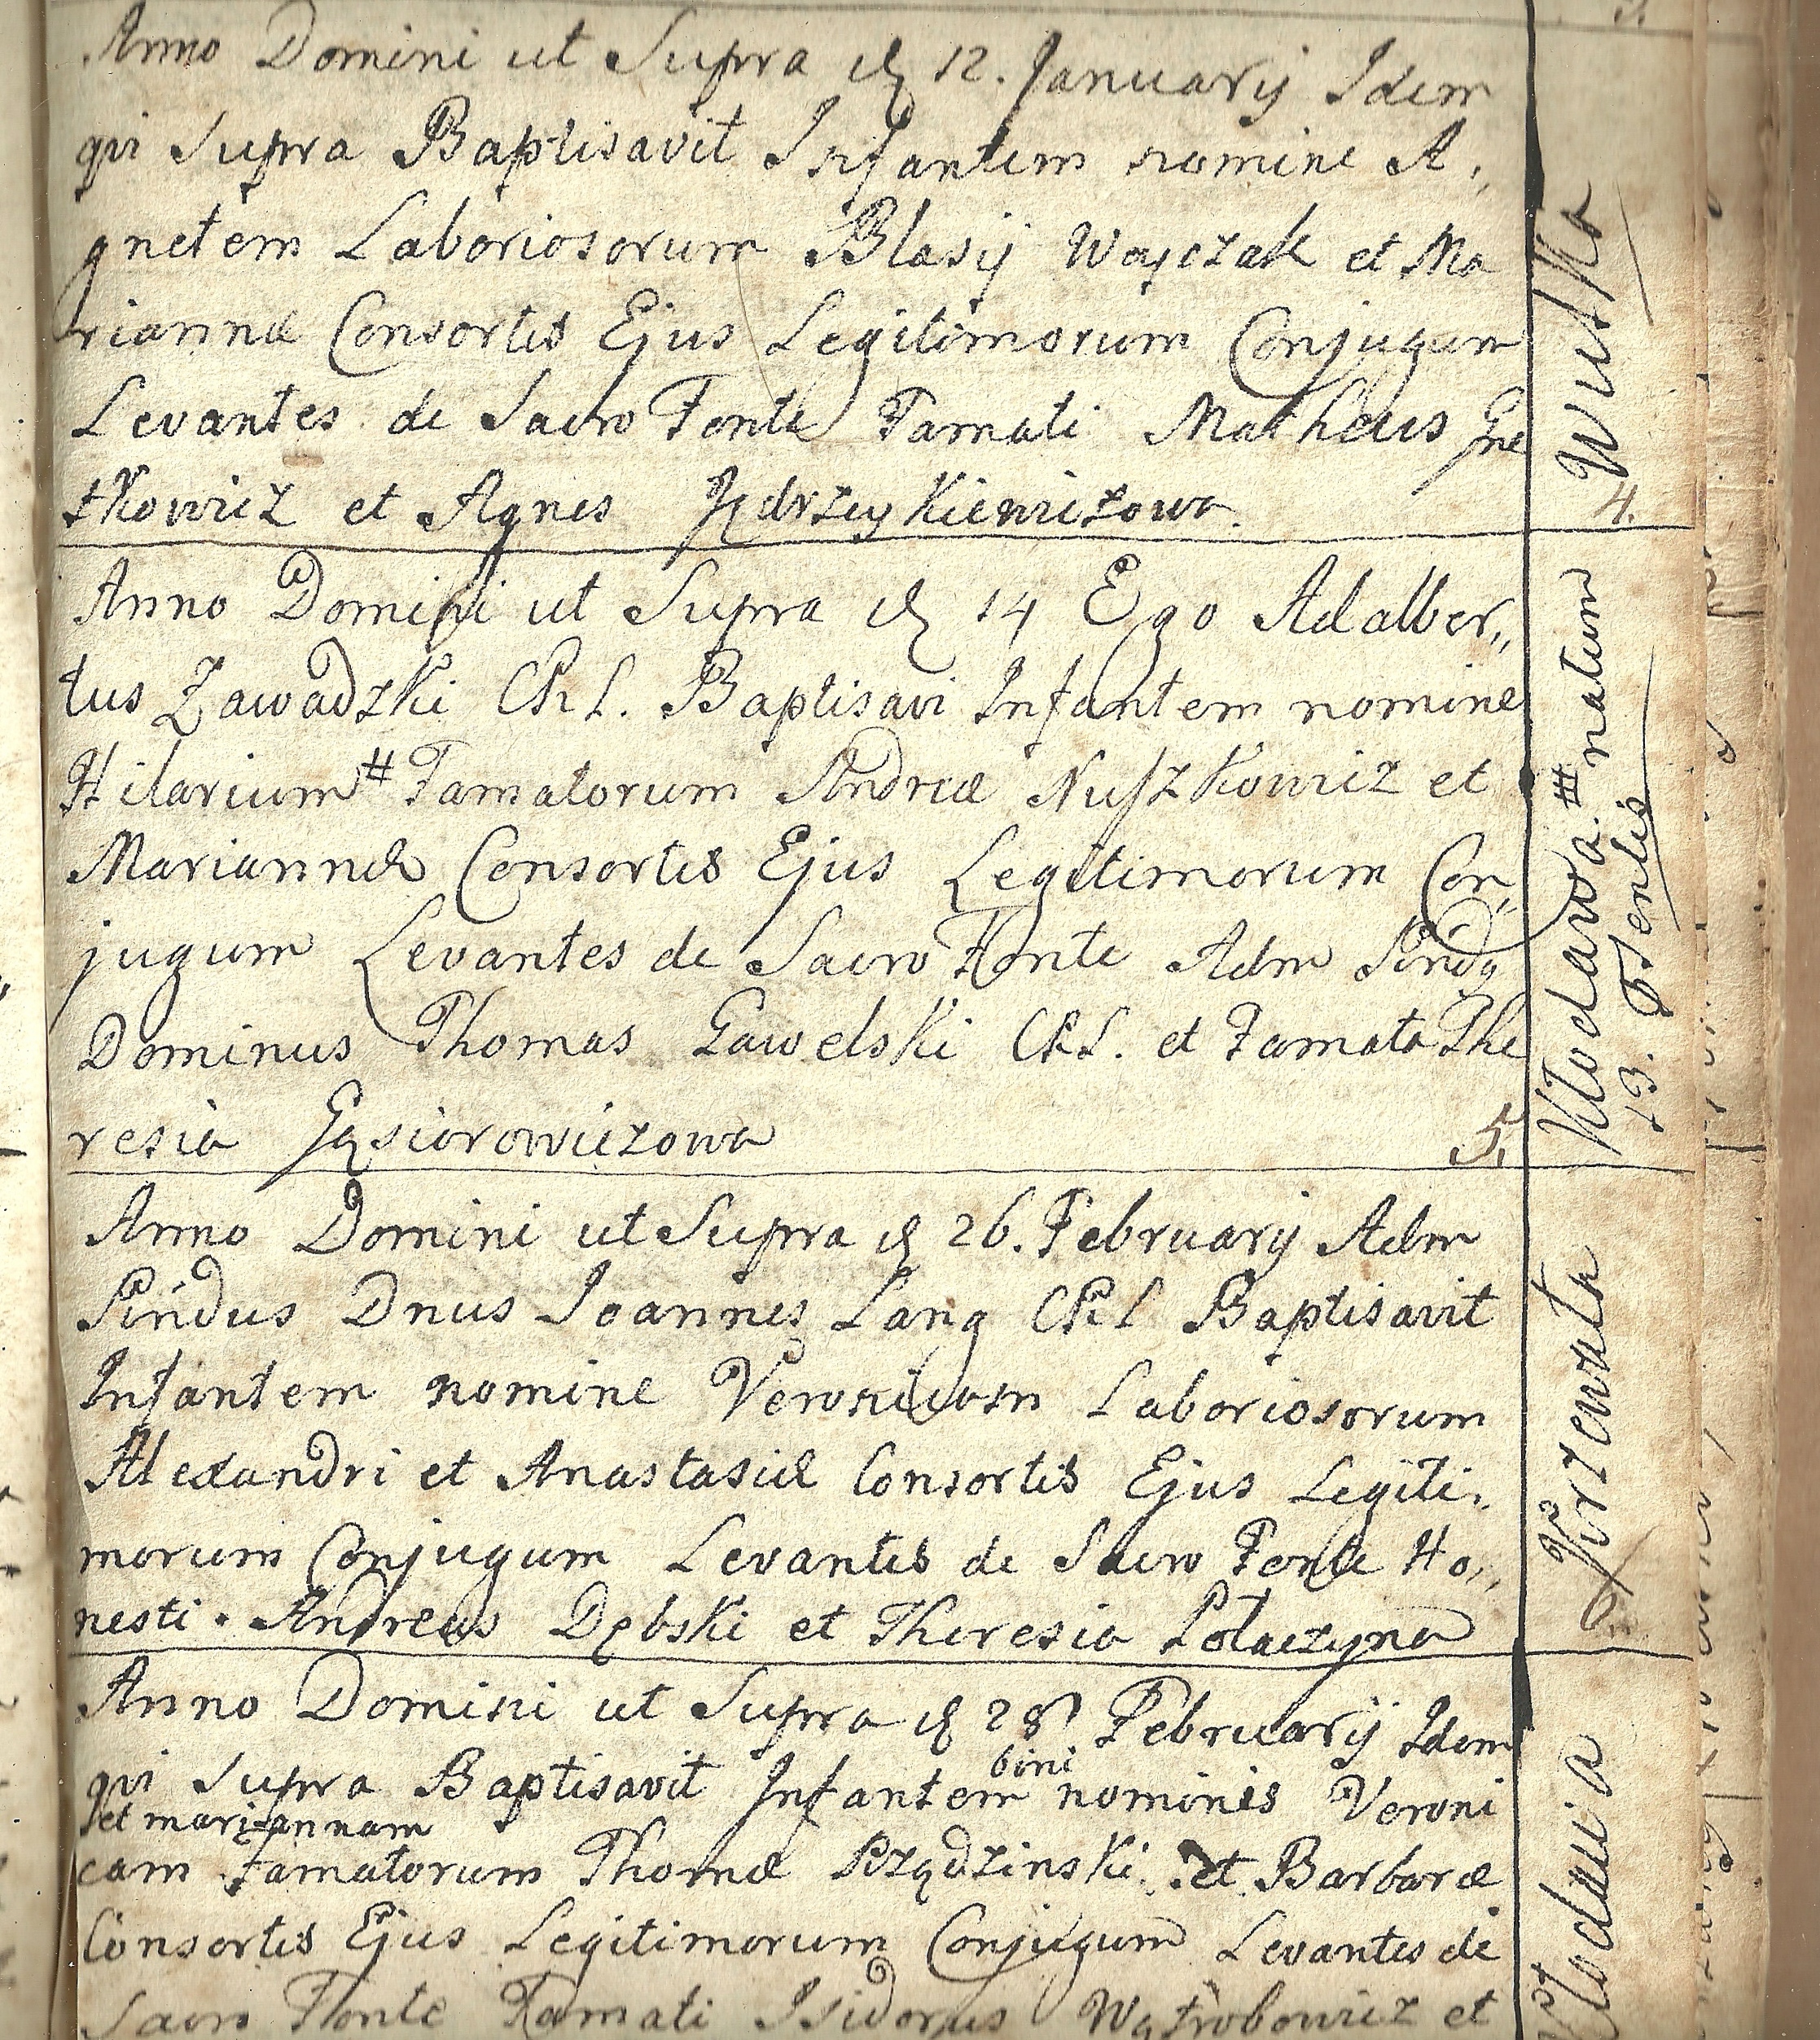 Anno Domini ut Supra d 12. Januarij Idem
qui Supra Baptisavit Infantem nomine A„
gnetem Laboriosorum Blasij Wayczak et Ma
riannæ Consortis Ejus Legitimorum Conjugum
Levantes de Sacro Fonte Famati Matheus Gne
tkowicz et Agnes Jędrzeykiewiczowa.
Wulka
4.
Anno Domini ut Supra d 14 Ego Adalber„
tus Zawadzki CRL. Baptisavi Infantem nomine
Hilarium # Famatorum Andreæ Nuszkowicz et
Mariannæ Consortis Ejus Legitimorum Con„
jugum Levantes de Sacro Fonte Adm
Dominus Thomas Gawelski CRL. et Famata The
resia Gąsiorowiczowa
5.
Kłodawa. # natum
13. psentis
Anno Domini ut Supra d 26. Februarij Adm
Dnus Joannes Lang CRL Baptisavit
Infantem nomine Veronicam Laboriosorum
Alexandri et Anastasiæ Consortis Ejus Legiti„
morum Conjugum Levantes de Sacro Fonte Ho„
nesti. Andreas Dębski et Theresia Potaczyna
Krzewata
6.
Anno Domini ut Supra d 28 Februarij Idem
bini
qui Supra Baptisavit Infantem nominis Veroni
et mariannam
cam Famatorum Thomæ Rządzinski et Barbaræ
Consortis Ejus Legitimorum Conjugum Levantes de
Sacro Fonte Famati Isidorus Wątrobowicz et
Kłodawa